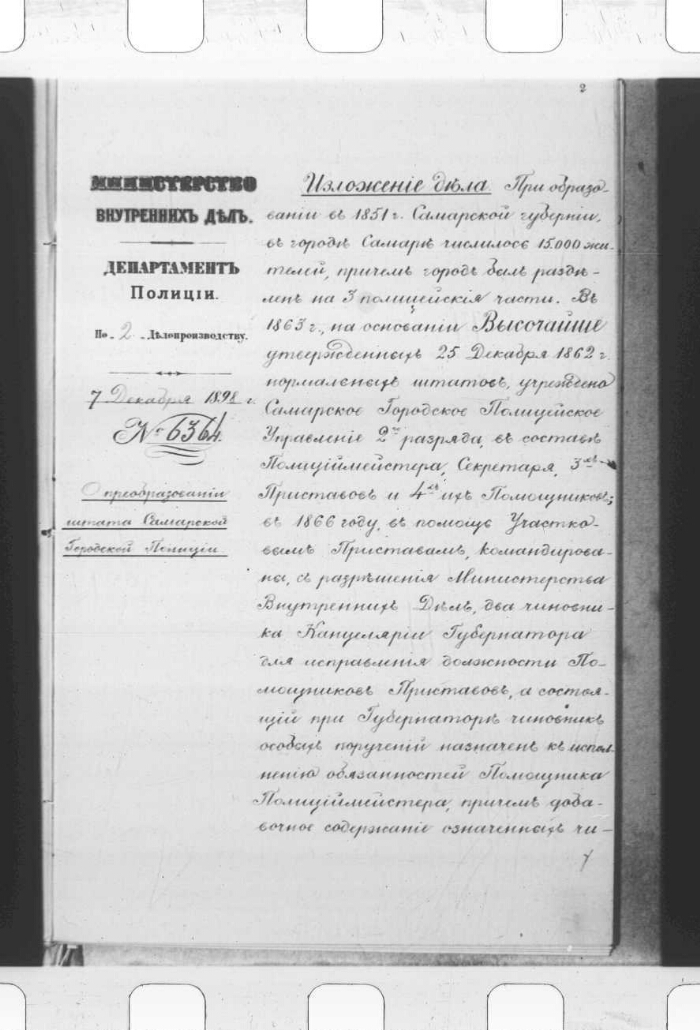 2
МИНИСТЕРСТВО
ВНУТРЕННИХЪ ДѢЛЪ.
ДЕПАРТАМЕНТЪ
Полиціи.
По 2 Дѣлопроизводству.
7 Декабря 1898 г.
№ 6364.
О преобразованіи
штата Самарской
Городской Полиціи
Изложеніе дѣла. При образо-
ваніи въ 1851 г. Самарской губерніи,
въ городѣ Самарѣ числилось 15.000 жи-
телей, причемъ городъ былъ раздѣ-
ленъ на 3 полицейскія части. Въ
1863 г., на основаніи Высочайше
утвержденныхъ 25 Декабря 1862 г.
нормальныхъ штатовъ, учреждено
Самарское Городское Полицейское
Управленіе 2го разряда, въ составѣ
Полиціймейстера, Секретаря, 3хъ
Приставовъ и 4хъ ихъ Помощниковъ;
въ 1866 году, въ помощь Участко-
вымъ Приставамъ, командирова-
ны, съ разрѣшенія Министерства
Внутреннихъ Дѣлъ, два чиновни-
ка Канцеляріи Губернатора
для исправленія должности По-
мощниковъ Приставовъ, а состоя-
щій при Губернаторѣ чиновникъ
особыхъ порученій назначенъ къ испол-
ненію обязанностей Помощника
Полиціймейстера, причемъ доба-
вочное содержаніе означенныхъ чи-